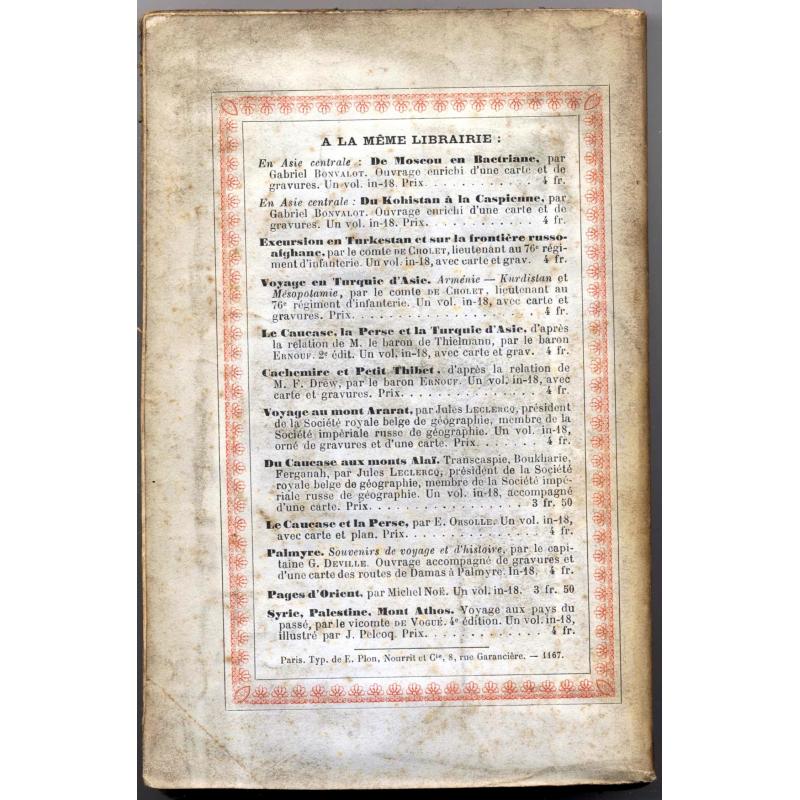 A LA MÊME LIBRAIRIE :
En Asie centrale : De Moscou en Bactriane, par
Gabriel BONVALOT. Ouvrage enrichi d'une carte et de
gravures. Un vol. in-18. Prix . . . . . . . . . . . 4 fr.
En Asie centrale : Du Kohistan à la Caspienne, par
Gabriel BONVALOT. Ouvrage enrichi d'une carte et de
gravures. Un vol. in-18. Prix. . . . . . . . . . . 4 fr.
Excursion en Turkestan et sur la frontière russo-
afghane, par le comte DE CHOLET, lieutenant au 76e régi-
ment d'infanterie. Un vol. in-18, avec carte et grav. 4 fr.
Voyage en Turquie d'Asie. Arménie — Kurdistan et
Mésopotamie, par le comte DE CHOLET, lieutenant au
76e régiment d'infanterie. Un vol. in-18, avec carte et
gravures. Prix. . . . . . . . . . . . . . . . 4 fr.
Le Caucase, la Perse et la Turquie d'Asie, d'après
la relation de M. le baron de Thielmann, par le baron
ERNOUF. 2e édit. Un vol. in-18, avec carte et grav. 4 fr.
Cachemire et Petit Thibet, d'après la relation de
M. F. Drëw, par le baron ERNOUF. Un vol. in-18, avec
carte et gravures. Prix. . . . . . . . . . . . . 4 fr.
Voyage au mont Ararat, par Jules LECLERCQ, président
de la Société royale belge de géographie, membre de la
Société impériale russe de géographie. Un vol. in-18,
orné de gravures et d'une carte. Prix. . . . . . . 4 fr.
Du Caucase aux monts Alaï. Transcaspie, Boukharie,
Ferganah, par Jules LECLERCQ, président de la Société
royale belge de géographie, membre de la Société impé-
riale russe de géographie. Un vol. in-18, accompagné
d'une carte. Prix. . . . . . . . . . . . . . 3 fr. 50
Le Caucase et la Perse, par E. ORSOLLE. Un vol. in-18,
avec carte et plan. Prix. . . . . . . . . . . . 4 fr.
Palmyre. Souvenirs de voyage et d'histoire, par le capi-
taine G. DEVILLE. Ouvrage accompagné de gravures et
d'une carte des routes de Damas à Palmyre. In-18. 4 fr.
Pages d'Orient, par Michel NOÉ. Un vol. in-18. 3 fr. 50
Syrie, Palestine, Mont Athos. Voyage aux pays du
passé, par le vicomte DE VOGUÉ. 4e édition. Un vol. in-18,
illustré par J. Pelcoq. Prix. . . . . . . . . . . 4 fr.
Paris. Typ. de E. Plon, Nourrit et Cie, 8, rue Garancière. — 1167.